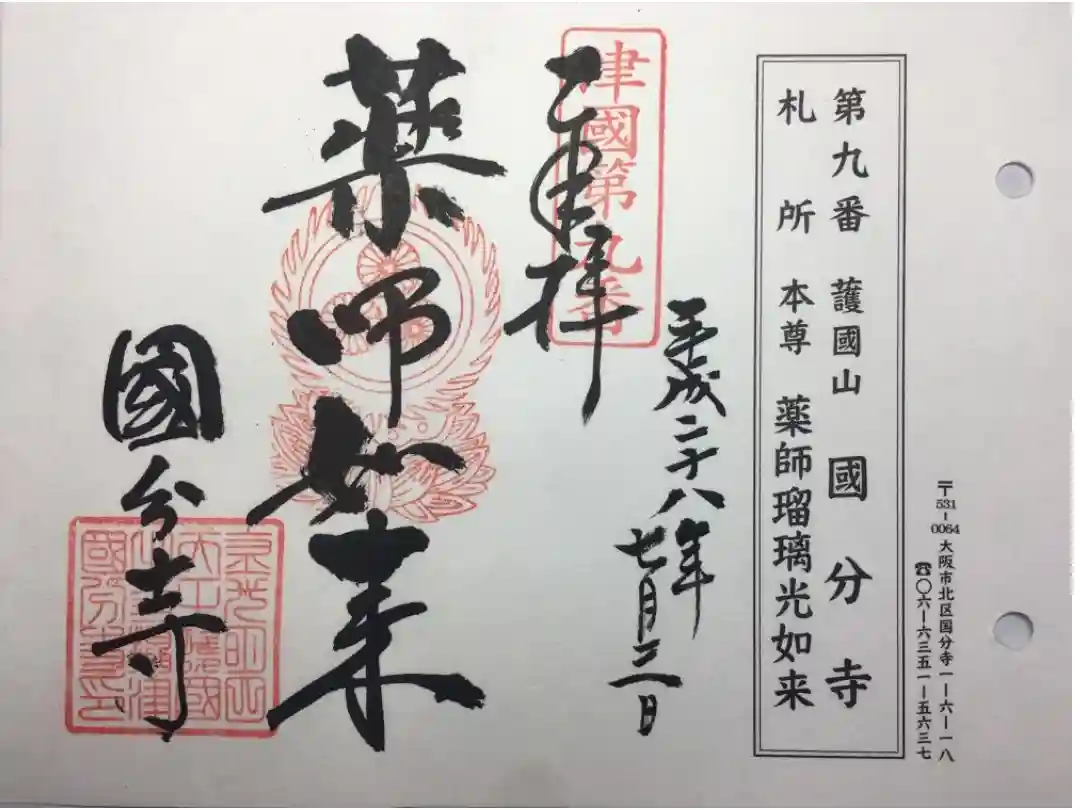 〒531-0064 大阪市北区国分寺一ー六ー一八
☎〇六ー六三五一ー五六三七
第九番 護國山 國分寺
札所 本尊 薬師瑠璃光如来
平成二十八年
七月三日
津國第九番
奉拝
薬師如来
國分寺